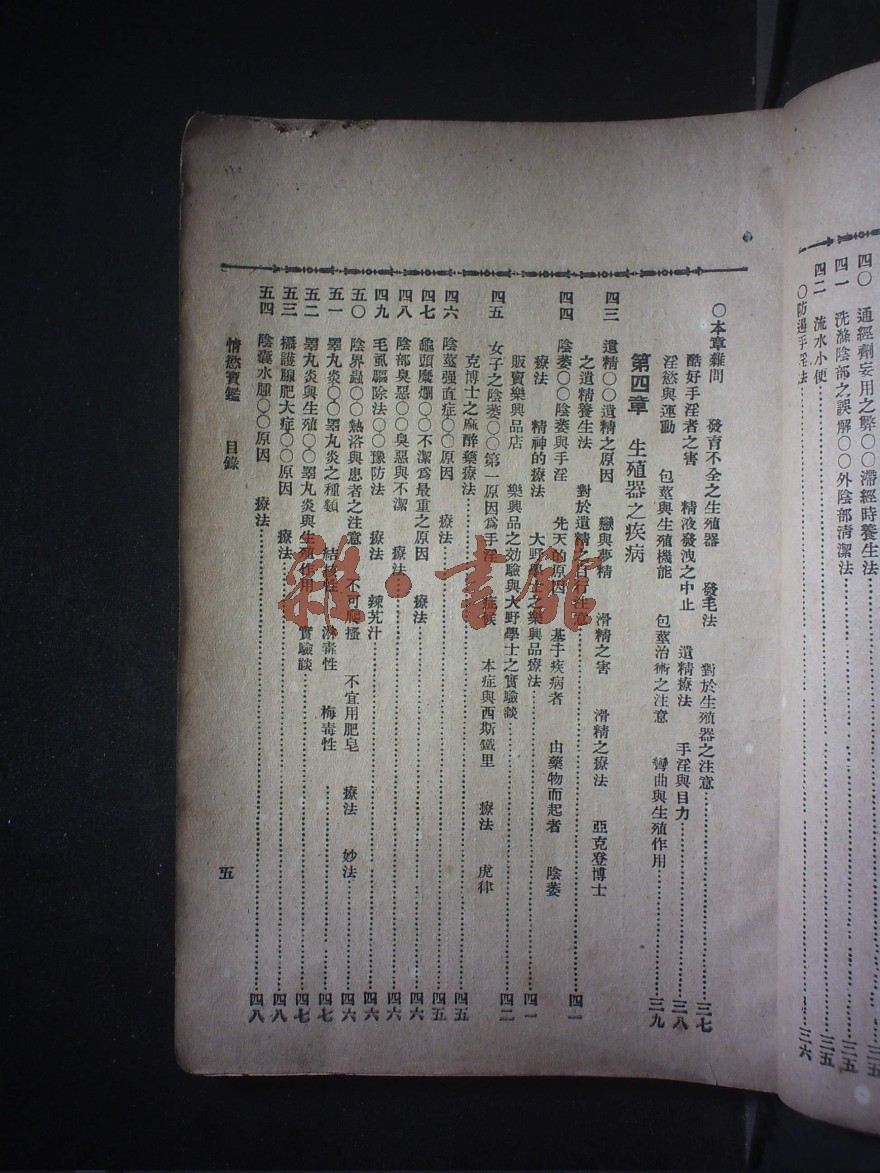 四〇 通經劑妄用之弊〇〇滯經時養生法……三五
四一 洗滌陰部之誤解〇〇外陰部清潔法……三五
四二 流水小便……三五
〇防遏手淫法……三六
〇本章雜問 發育不全之生殖器 發毛法 對於生殖器之注意……三七
酷好手淫者之害 精液發洩之中止 遺精療法 手淫與目力……三八
淫慾與運動 包莖與生殖機能 包莖治術之注意 彎曲與生殖作用……三九
第四章 生殖器之疾病
四三 遺精〇〇遺精之原因 戀與夢精 滑精之害 滑精之療法 亞克登博士
之遺精養生法 對於遺精之自行注意……四一
四四 陰萎〇〇陰萎與手淫 先天的原因 基于疾病者 由藥物而起者 陰萎
療法 精神的療法 大野學士之藥興品療法……四一
販賣樂興品店 樂興品之効驗與大野學士之實驗談……四二
四五 女子之陰萎〇〇第一原因爲手淫 症候 本症與西斯鐵里 療法 虎律
克博士之麻醉藥療法……四五
四六 陰莖强直症〇〇原因 療法……四五
四七 龜頭糜爛〇〇不潔爲最重之原因 療法……四六
四八 陰部臭惡〇〇臭惡與不潔 療法……四六
四九 毛虱驅除法〇〇豫防法 療法 辣艽汁……四六
五〇 陰界蟲〇〇熱浴與患者之注意 不可爬搔 不宜用肥皂 療法 妙法……四六
五一 睪丸炎〇〇睪丸炎之種類 結核性 淋毒性 梅毒性……四七
五二 睪丸炎與生殖〇〇睪丸炎與生殖作用 實驗談……四七
五三 攝護腺肥大症〇〇原因 療法……四八
五四 陰囊水腫〇〇原因 療法……四八
情慾寶鑑 目錄 五
雜·書館